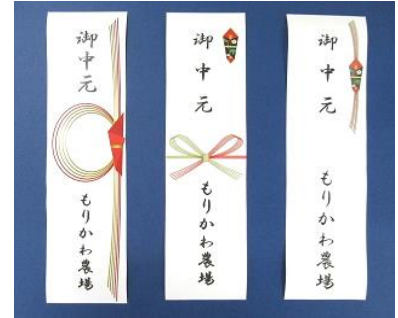 御中元
もりかわ農場
御中元
もりかわ農場
御中元
もりかわ農場